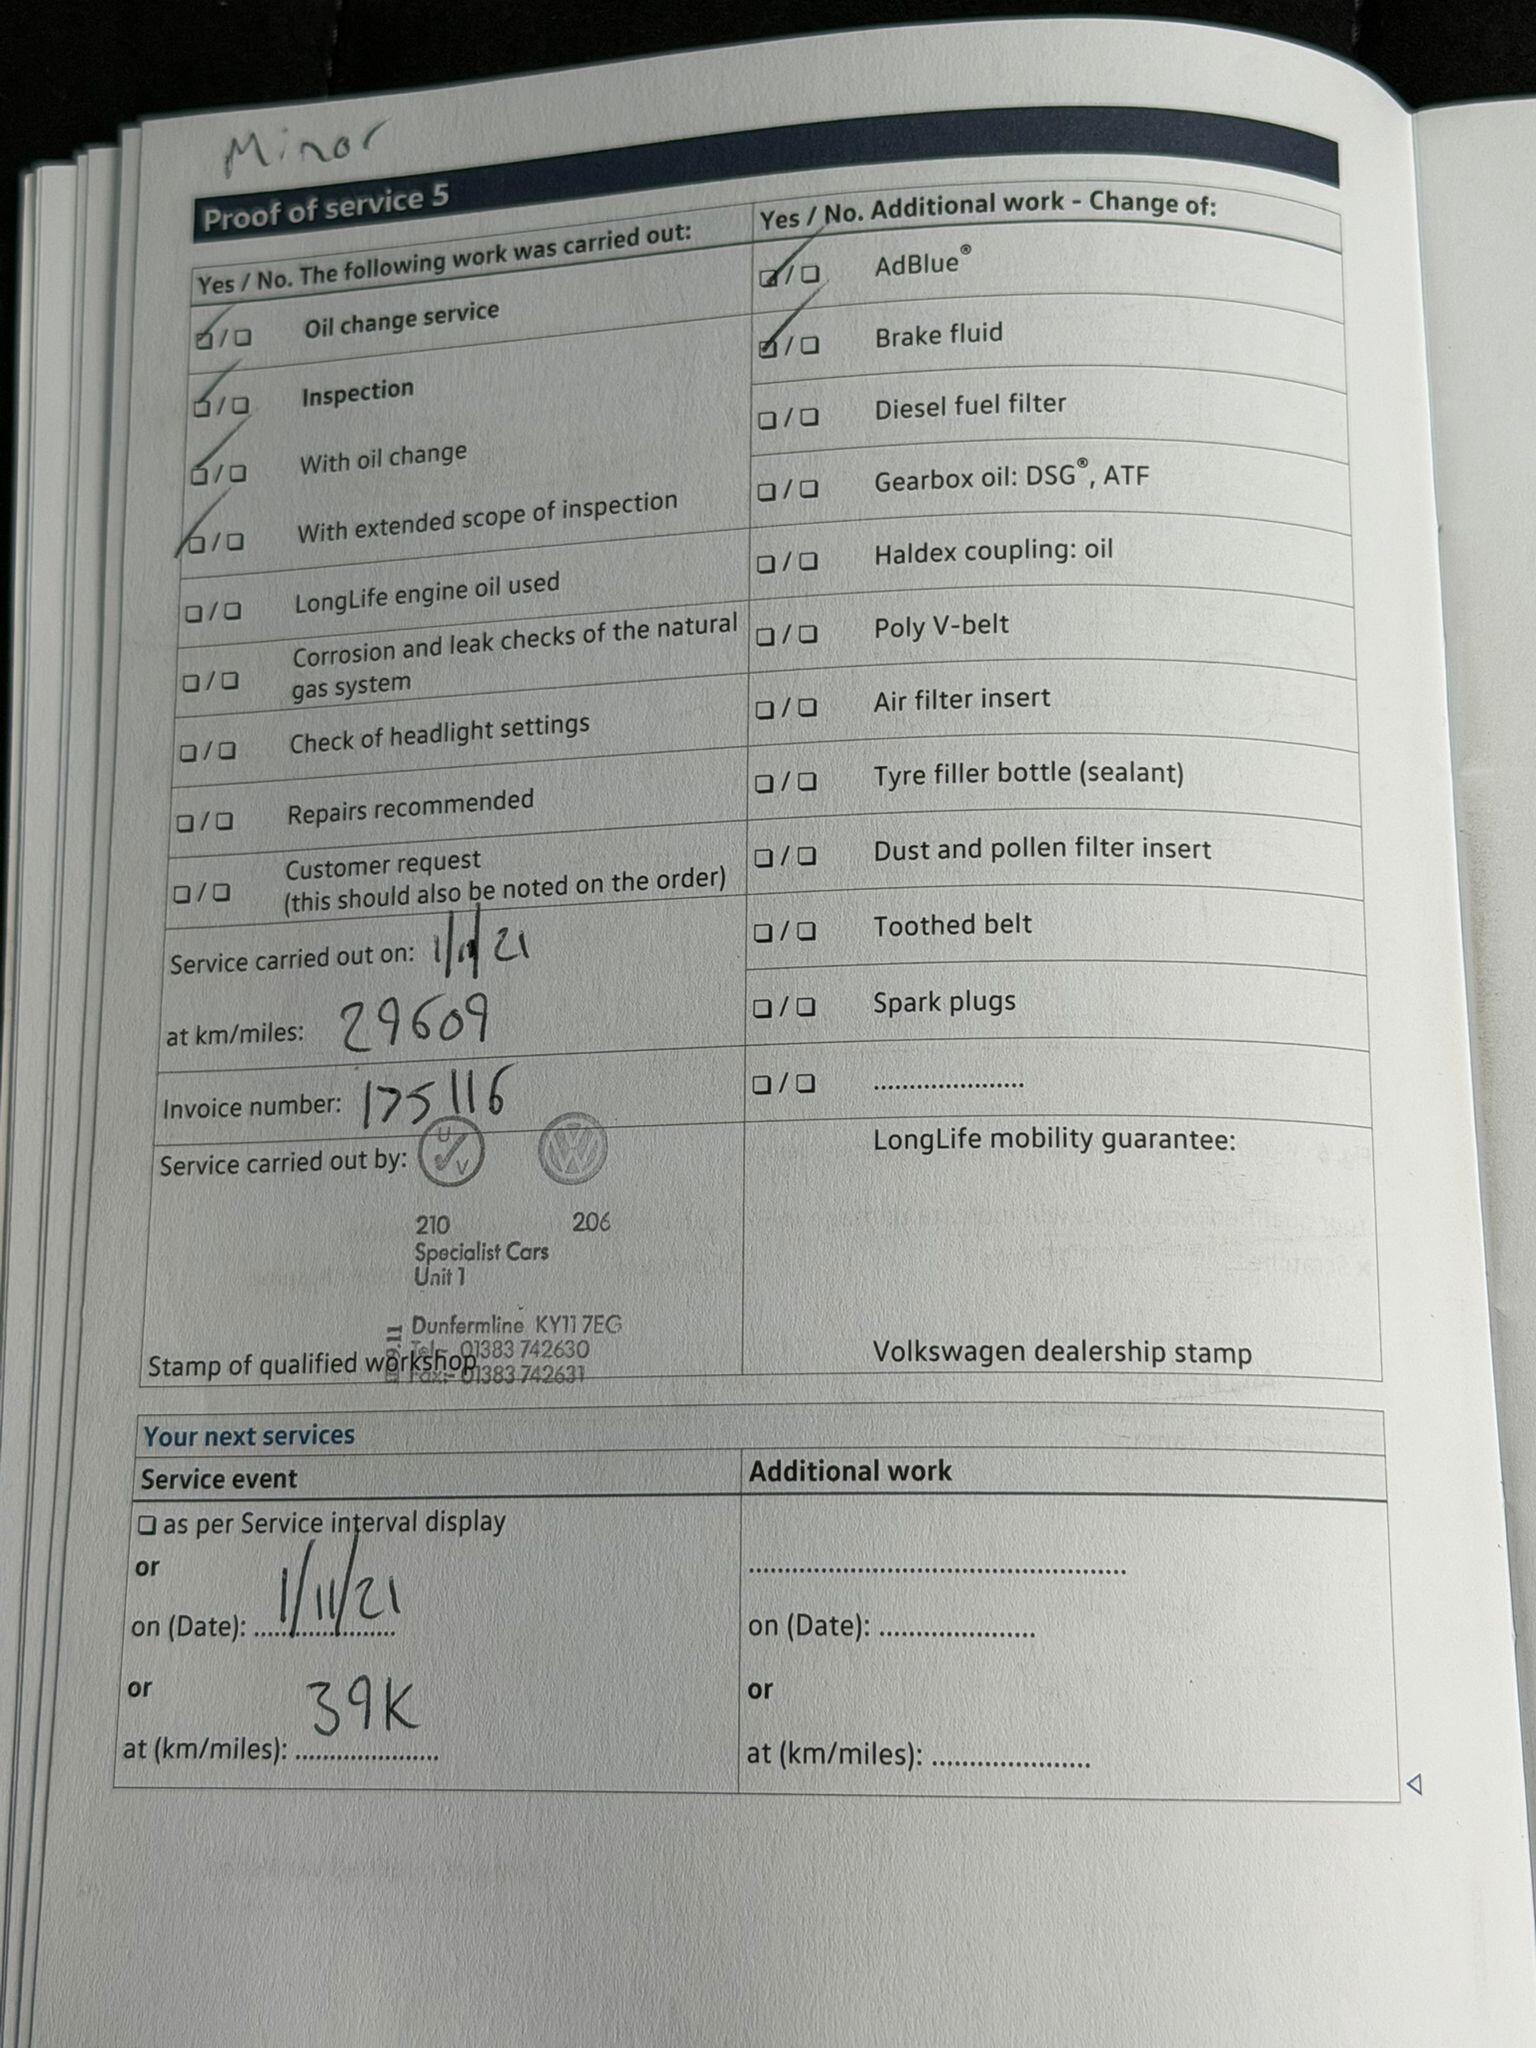 Minor
Proof of service 5
Yes / No. The following work was carried out:
☑ / ☐ Oil change service
☑ / ☐ Inspection
☑ / ☐ With oil change
☑ / ☐ With extended scope of inspection
☐ / ☐ LongLife engine oil used
☐ / ☐ Corrosion and leak checks of the natural
gas system
☐ / ☐ Check of headlight settings
☐ / ☐ Repairs recommended
☐ / ☐ Customer request
(this should also be noted on the order)
Service carried out on: 1/11/21
at km/miles: 29609
Invoice number: 175116
Service carried out by:
U V
VW
210 206
Specialist Cars
Unit 1
Dunfermline KY11 7EG
Tel:- 01383 742630
Fax:- 01383 742631
Stamp of qualified workshop
Yes / No. Additional work - Change of:
☑ / ☐ AdBlue®
☑ / ☐ Brake fluid
☐ / ☐ Diesel fuel filter
☐ / ☐ Gearbox oil: DSG®, ATF
☐ / ☐ Haldex coupling: oil
☐ / ☐ Poly V-belt
☐ / ☐ Air filter insert
☐ / ☐ Tyre filler bottle (sealant)
☐ / ☐ Dust and pollen filter insert
☐ / ☐ Toothed belt
☐ / ☐ Spark plugs
☐ / ☐ ......................
LongLife mobility guarantee:
Volkswagen dealership stamp
Your next services
Service event
☐ as per Service interval display
or
on (Date): 1/11/21
or
at (km/miles): 39K
Additional work
......................................................
on (Date): ......................
or
at (km/miles): ......................